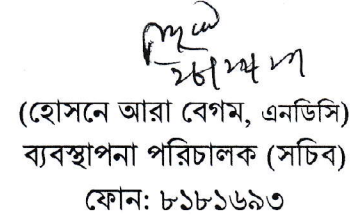 (হোসনে আরা বেগম, এনডিসি)
ব্যবস্থাপনা পরিচালক (সচিব)
ফোন: ৮১৮১৬৯৩